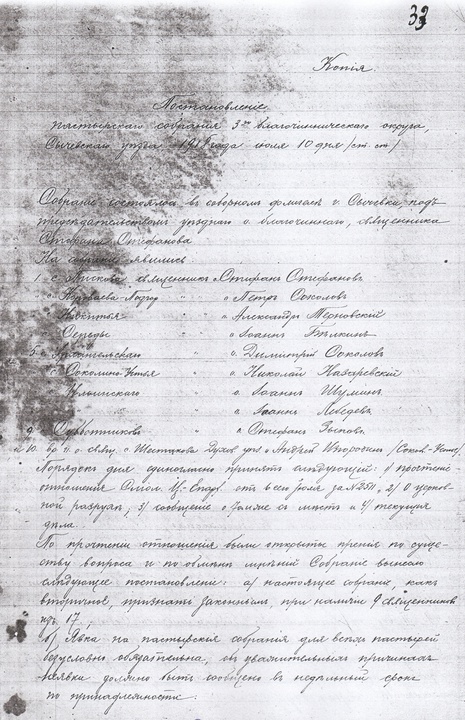 33
Копія.
Постановленіе
пастырскаго собранія 3го благочинническаго округа,
Сычевскаго уѣзда 1918 года іюля 10 дня /ст. ст./
Собраніе состоялось въ соборномъ г. Сычевки, подъ
предсѣдательствомъ уѣзднаго о. благочиннаго, священника
Стефана Стефанова
На собраніе явились:
1. с. священникъ Стефанъ Стефановъ
" " " о Петръ Соколовъ
" " о Александръ Терновскій
" " о Іоаннъ
5 " " о Димитрій Соколовъ
" " " о Николай Назаревскій
" " о Іоаннъ Шуминъ
" о Іоаннъ Лебедевъ
9 Субботниковъ " о Стефанъ
и 10. свящ. с. Шестакова о Андрей
Порядокъ дня единогласно принятъ слѣдующій: 1) прочтеніе
отношенія Смол. Ц.-Епарх. отъ іюля за № 251, 2) О церков-
ной разрухѣ, 3) сообщеніе о съ мѣстъ и 4) текущія
дѣла.
По прочтеніи отношенія были открыты пренія по суще-
ству вопроса и по обмѣнѣ мнѣній Собраніе вынесло
слѣдующее постановленіе: а) настоящее собраніе, какъ
вторичное, признать законнымъ, при наличіи 9 священниковъ
изъ 17;
б) Явка на пастырскія собранія для всѣхъ пастырей
безусловно обязательна, объ уважительныхъ причинахъ
неявки должно быть сообщено въ недѣльный срокъ
по принадлежности: